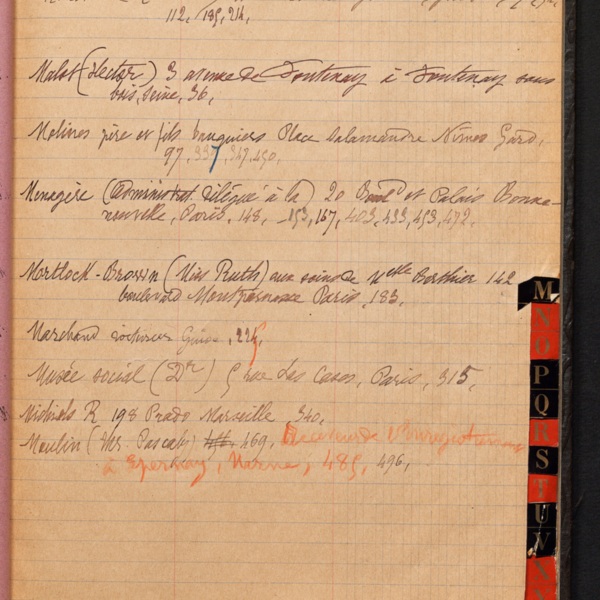 112, 185, 214,
Malot (Hector) 3 avenue de Fontenay à Fontenay sous
bois, Seine, 36,
Molines père et fils banquiers Place Salamandre Nîmes Gard,
97, 337, 347, 450,
Menagère (Administrat. délégué à la) 20 Boul^d et Palais Bonne-
nouvelle, Paris, 148, 153, 167, 403, 433, 453, 472,
Mortlock-Brown (Miss Ruth) aux soins de Melle Berthier 142
boulevard Montparnasse Paris, 183,
Marchand 224,
Musée social (Dr) 5 rue Las Cases, Paris, 315,
Nichols R 198 Prado Marseille 340,
Moulin (Mr Pascal) 469, Receveur de l'Enregistrement
à Epernay, Marne, 485, 496,
M
N
O
P
Q
R
S
T
U
V
X